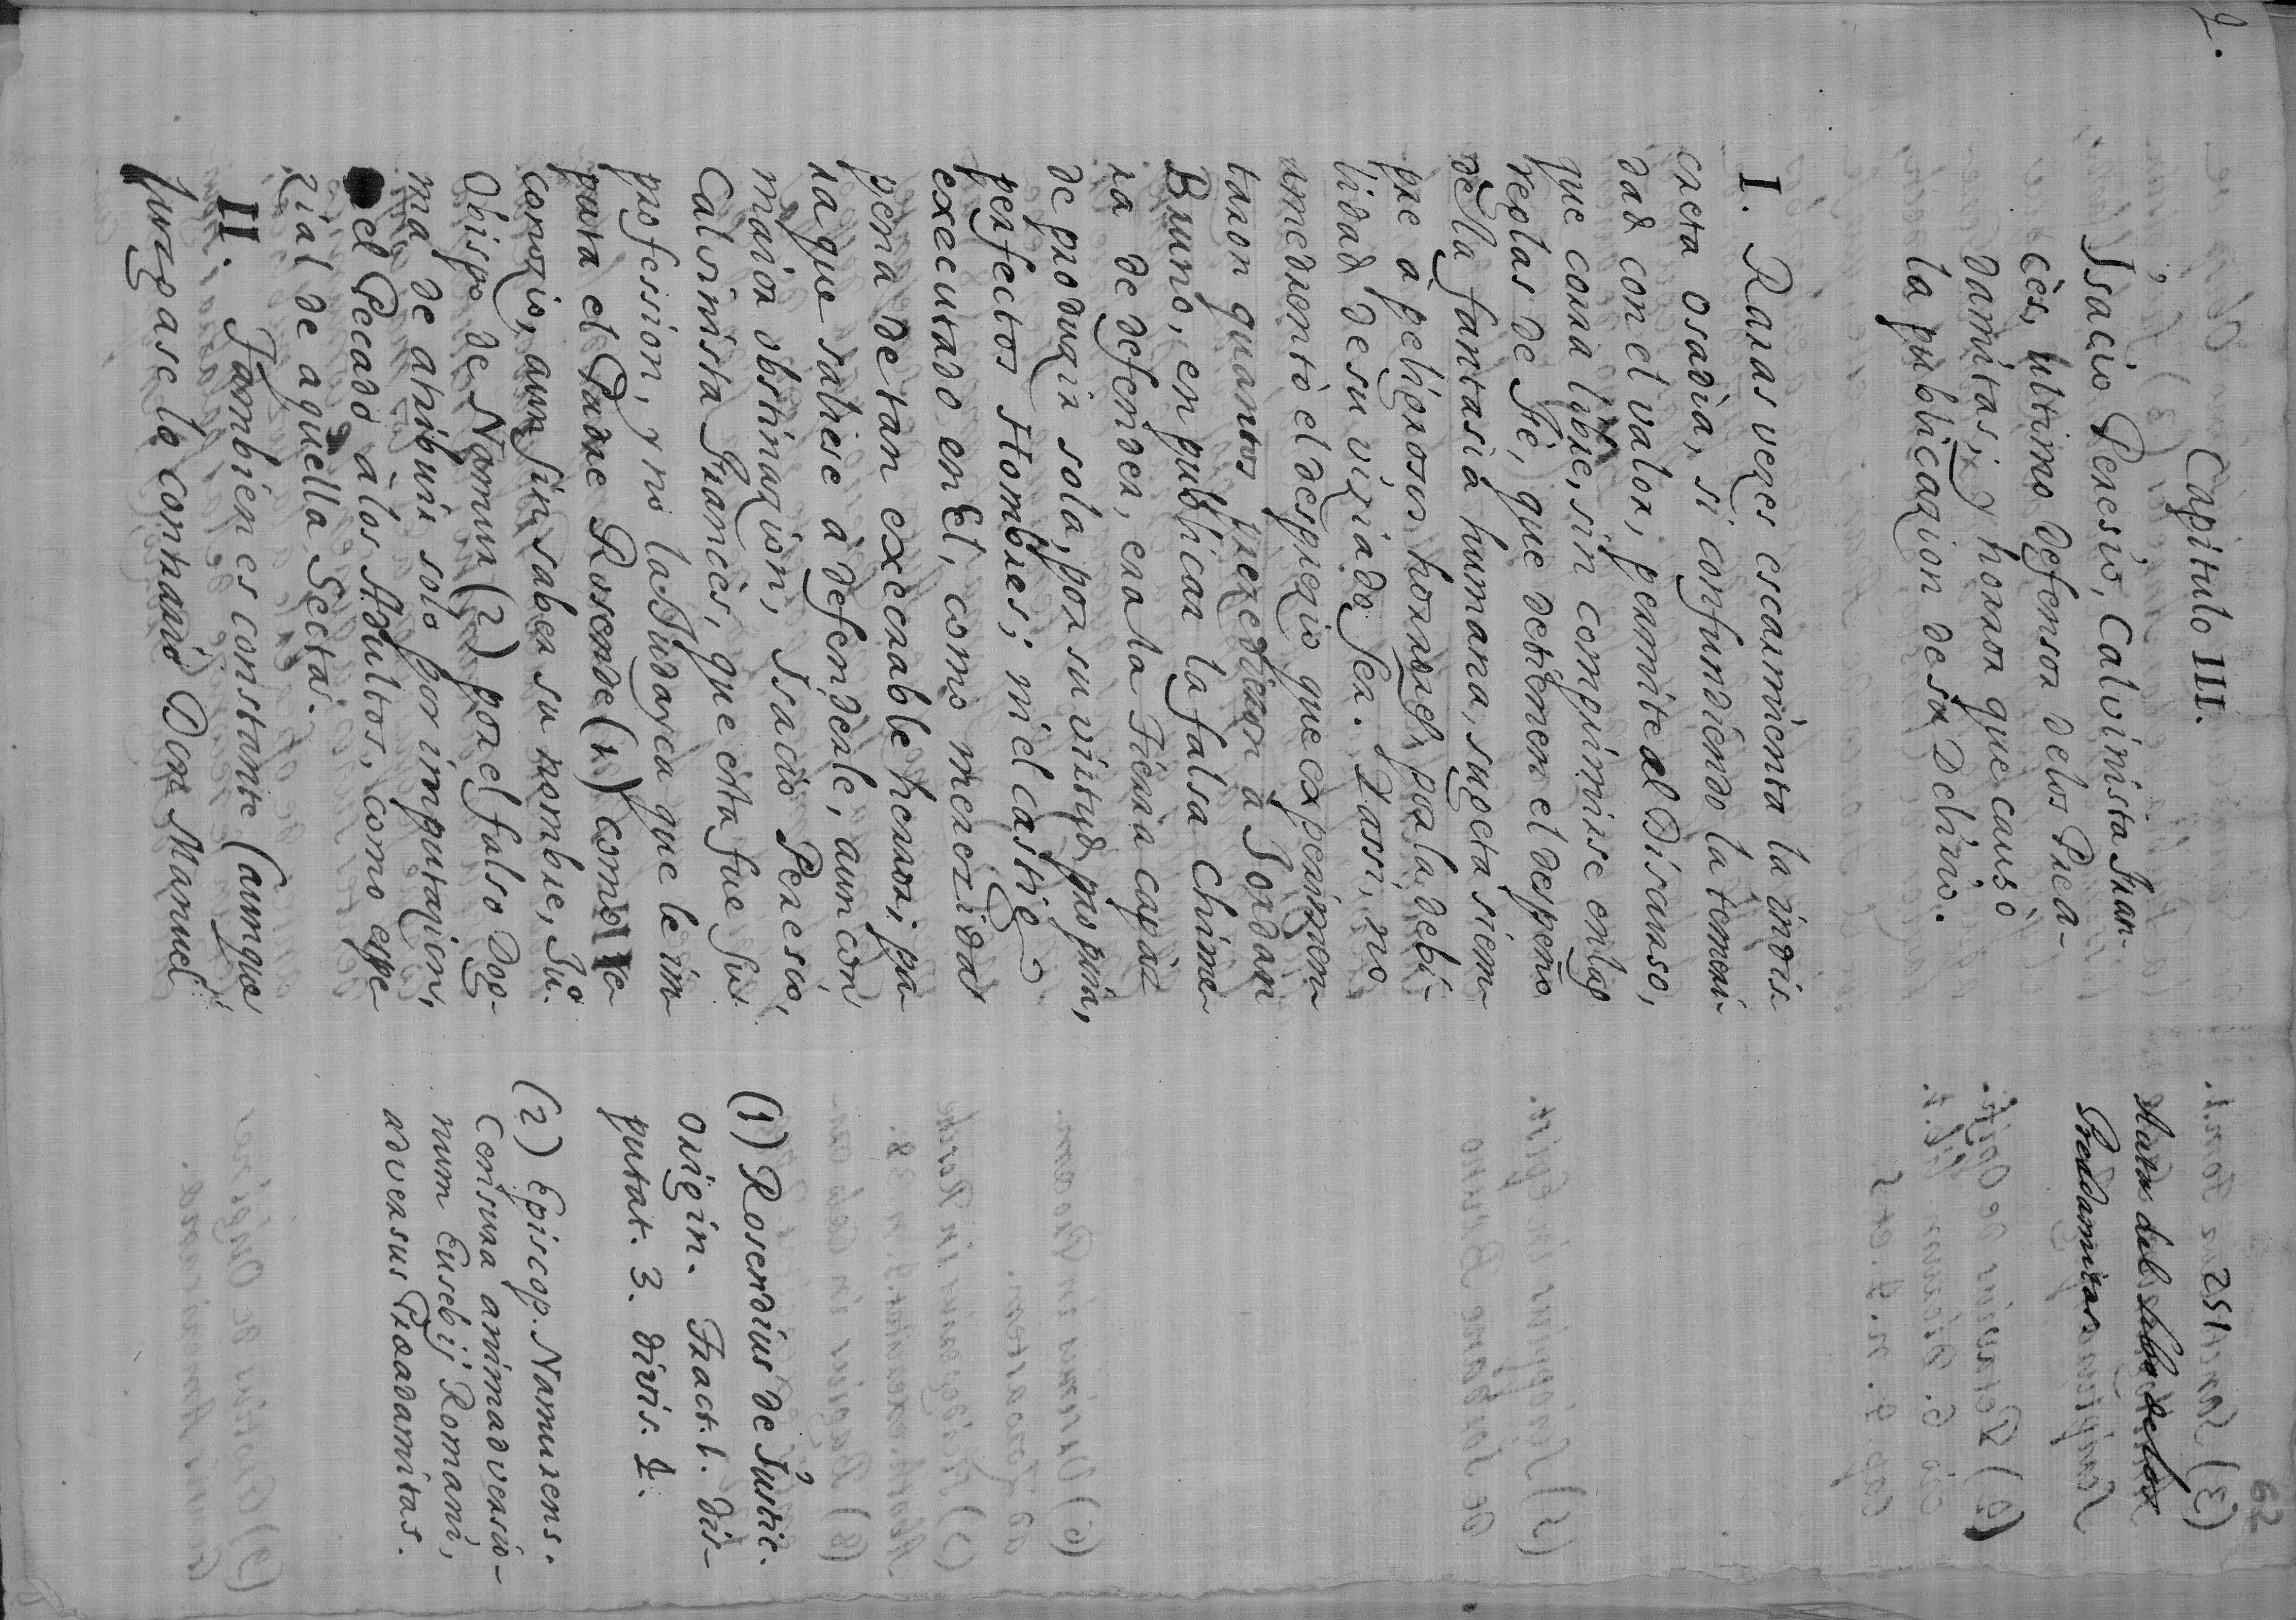 2.
Capitulo III.
Isacio Peresio, Calvinista Fran-
cès, ultimo defensor delos Prea-
damitas; y honor que causò
la publicazion de su Delirio.
I. Raras vezes escarmienta la indis-
creta osadia, si confundiendo la temeri-
dad con el valor, permite al Discurso,
que corra libre, sin comprimirse en las
reglas de Fè, que detienen el despeño
dela fantasia humana, sugeta siem-
pre à peligrosos horrores, por la debi-
lidad de su viziado ser. Y assi, no
amedrentò el desprezio que experimen-
taron quantos precedieron à Jordan
Bruno, en publicar la falsa Chime-
ra de defender, era la Tierra capàz
de produzir sola, por su virtud propria,
perfectos Hombres; ni el castigo
executado en El, como merezida
pena de tan execrable herror; pa-
ra que saliese à defenderle, aun con
maior obstinazion, Isacio Peresio,
Calvinista Francès, que esta fue su
profession, y no la Judayca que le im-
puta el Padre Rosende (1) como le
conozio, aun sin saber su nombre, Juº
Obispo de Namur (2) por el falso Dog-
ma de atribuir solo por imputazion,
el Pecado à los Adultos, como espe-
zial de aquella Secta.
II. Tambien es constante (aunque
juzgase lo contrario Don Manuel
62
152
Autor del libro de los
Preadamitas
(1) Rosendius de Justic.
Origin. Tract. 1. dis-
putat. 3. divis. 1.
(2) Episcop. Namurens.
Censura animadversio-
num Eusebij Romani,
adversus Preadamitas.